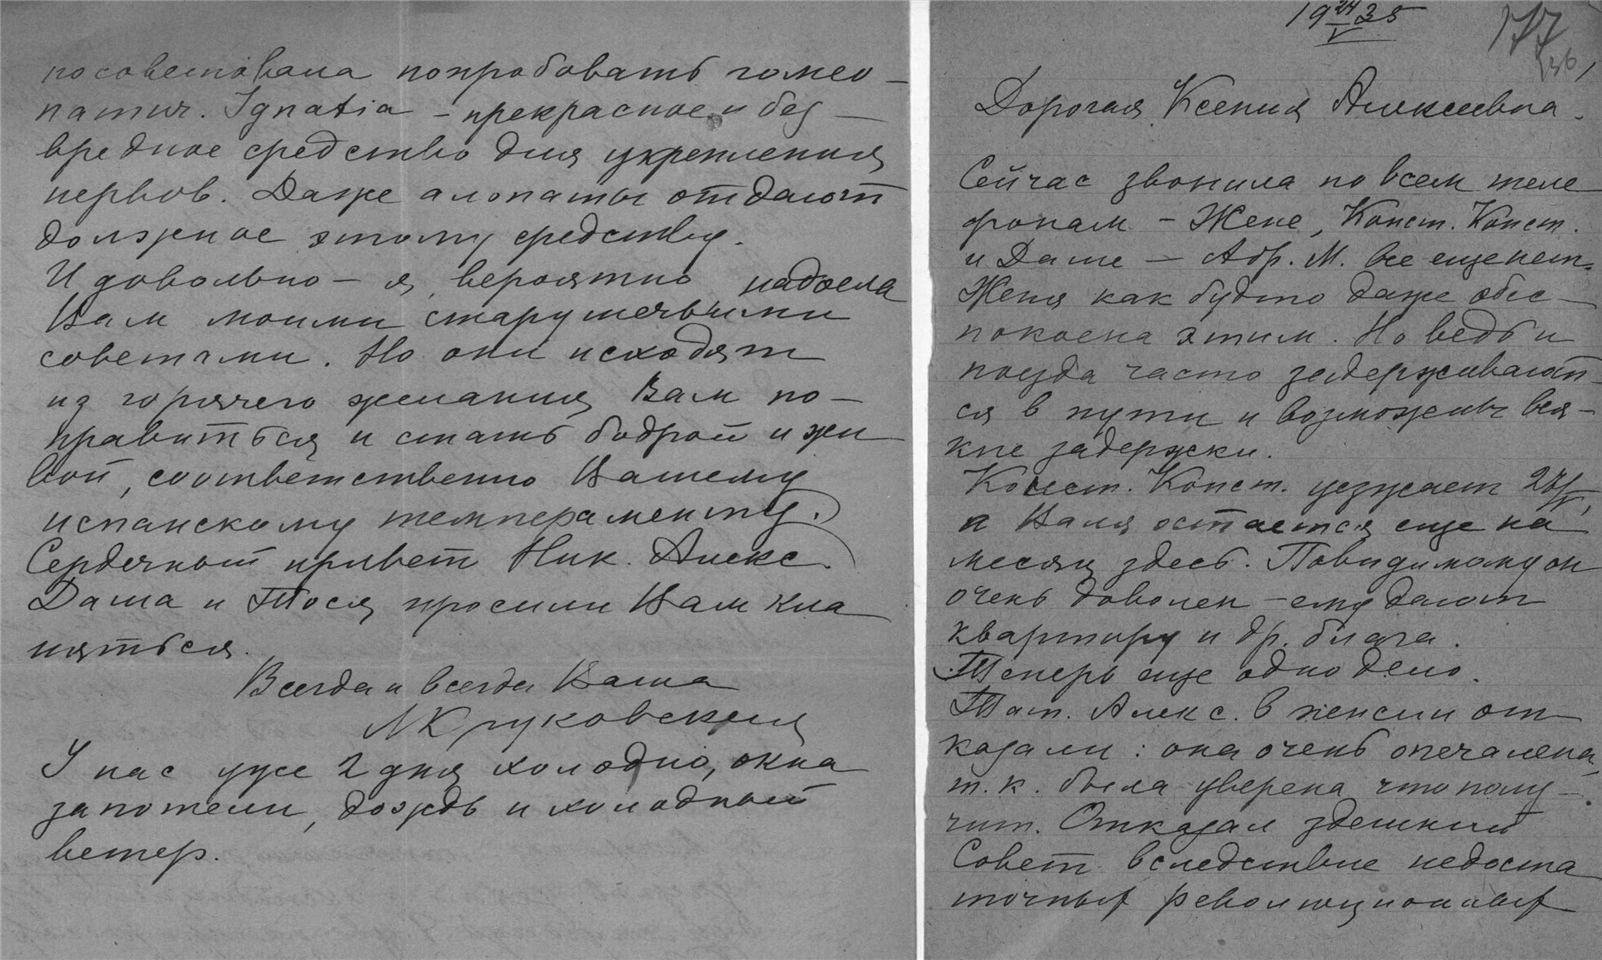 посоветовала попробовать гомео-
патич. Ignatia - прекрасное и без-
вредное средство для укрепления
нервов. Даже алопаты отдают
должное этому средству.
И довольно - я, вероятно надоела
Вам моими старушечьими
советами. Но они исходят
из горячего желания Вам по-
правиться и стать бодрой и жи
вой, соответственно Вашему
испанскому темпераменту.)
Сердечный привет Ник. Алекс.
Даша и Тося просили Вам кла
няться.
Всегда и всегда Ваша
М Круковская
У нас уже 2 дня холодно, окна
запотели, дождь и холодный
ветер.
19 24/V 35
177
Дорогая Ксения Алексеевна.
Сейчас звонила по всем теле
фонам - Жене, Конст. Конст.
и Даше - Абр. М. все еще нет.
Женя как будто даже обес-
покоена этим. Но ведь и
поезда часто задерживают-
ся в пути и возможны вся-
кие задержки.
Конст. Конст. уезжает
а Валя остается еще на
месяц здесь. Повидимому он
очень доволен - ему дают
квартиру и др. блага.
Теперь еще одно дело.
Тат. Алекс. в пенсии от
казали: она очень опечалена,
т.к. была уверена что полу-
чит. Отказал здешний
Совет вследствие недоста
точных революционных